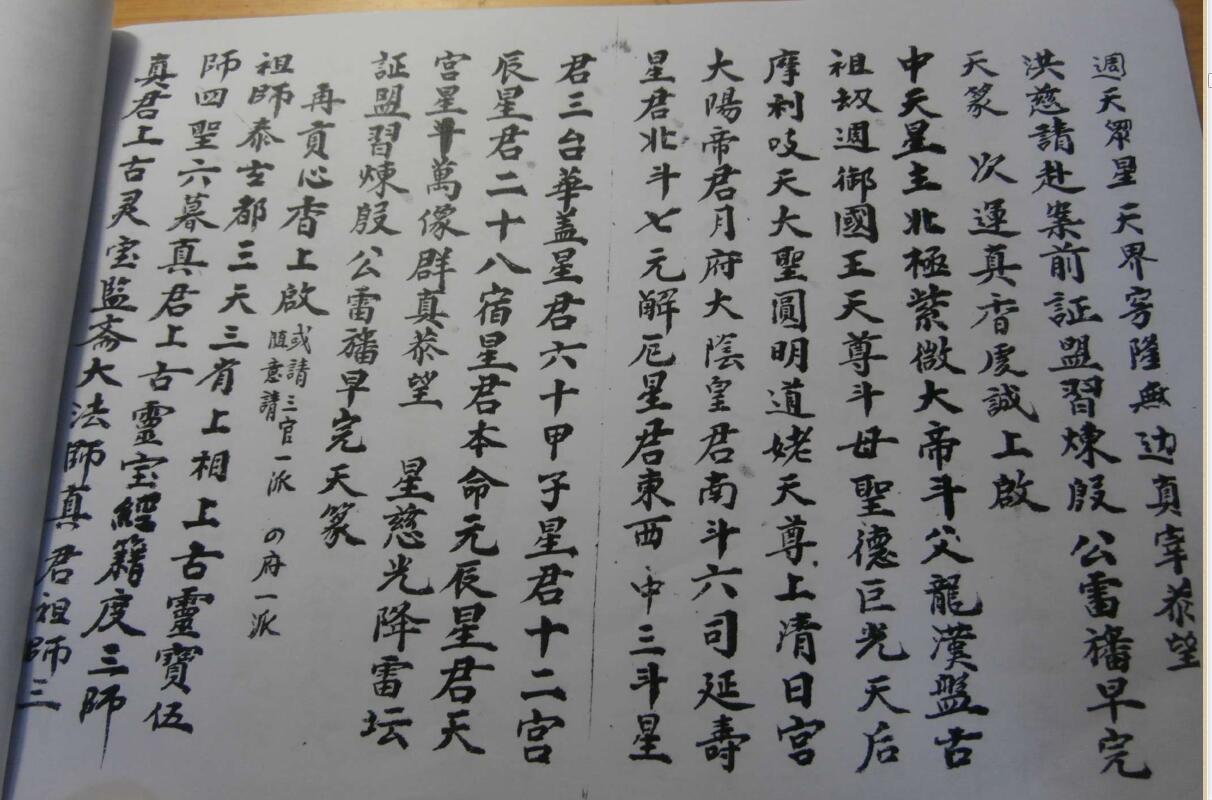 週天眾星天界穹隆無边真宰恭望
洪慈請赴案前証盟習煉殷公雷旛早完
天篆 次運真香虔誠上啟
中天星主北極紫微大帝斗父龍漢盤古
祖刼週御國王天尊斗母聖德巨光天后
摩利吱天大聖圓明道姥天尊上清日宮
大陽帝君月府大陰皇君南斗六司延壽
星君北斗七元解厄星君東西中三斗星
君三台華盖星君六十甲子星君十二宮
辰星君二十八宿星君本命元辰星君天
宮星斗萬像群真恭望 星慈光降雷坛
証盟習煉殷公雷旛早完天篆
再貢心香上啟 或請三官一派 の府一派
隨意請
祖師泰玄都三天三省上相上古靈寶伍
師四聖六慕真君上古靈宝經籍度三師
真君上古灵宝監斋大法師真君祖師三